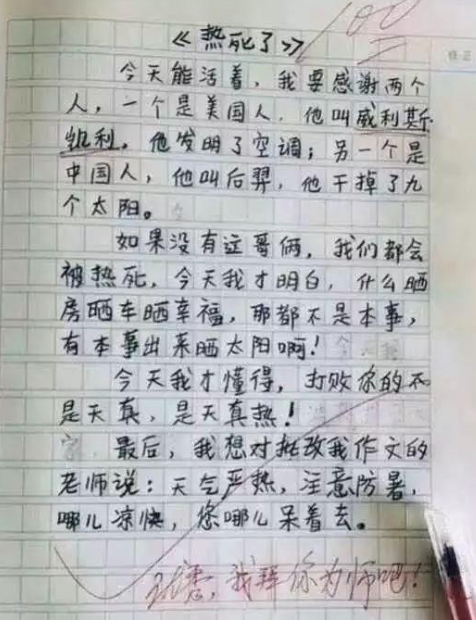 《热死了》
100
今天能活着，我要感谢两个
人，一个是美国人，他叫威利斯
凯利，他发明了空调；另一个是
中国人，他叫后羿，他干掉了九
个太阳。
如果没有这哥俩，我们都会
被热死，今天我才明白，什么晒
房晒车晒幸福，那都不是本事，
有本事出来晒太阳啊！
今天我才懂得，打败你的不
是天真，是天真热！
最后，我想对批改我作文的
老师说：天气严热，注意防暑，
哪儿凉快，您哪儿呆着去。
我拜你为师吧！